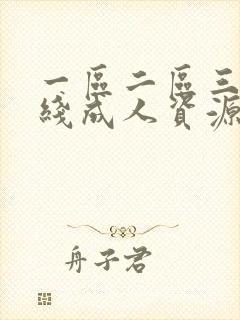 一區二區三
綫成人資源
舟子君